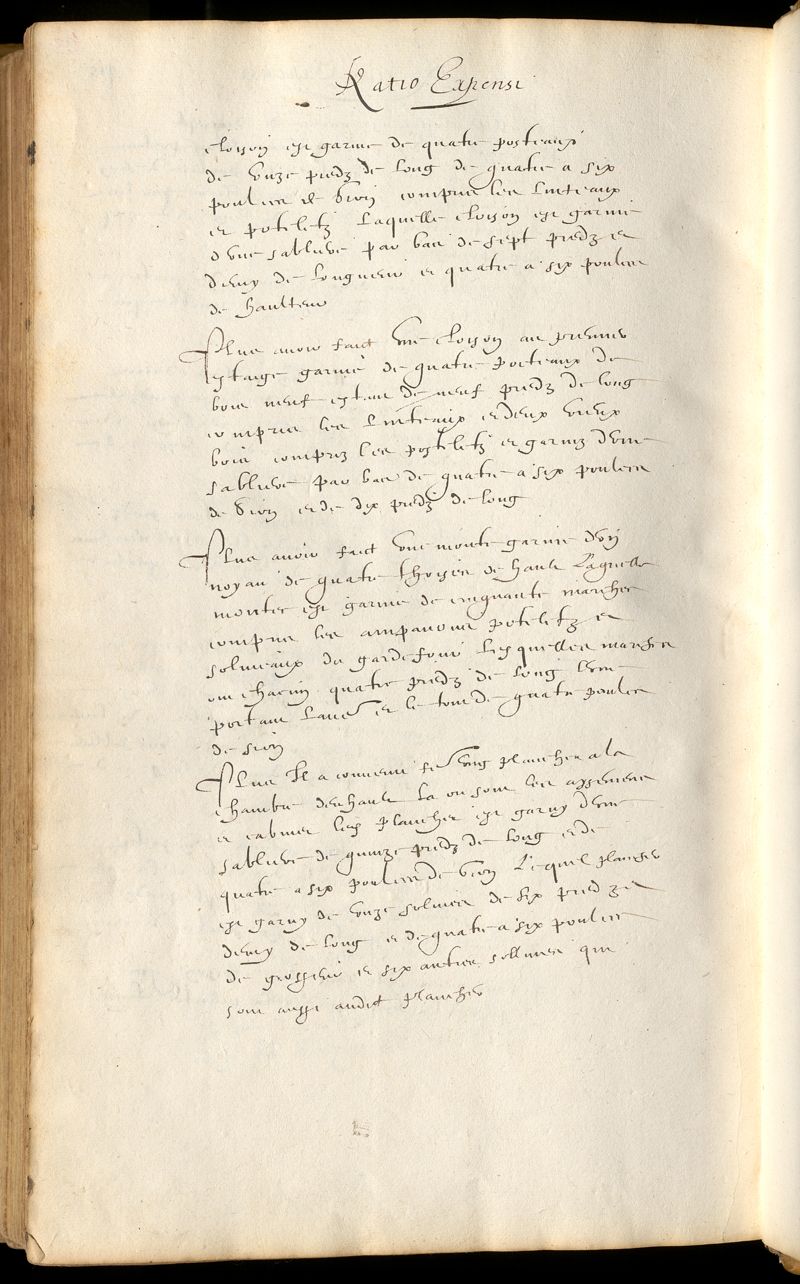 Ratio Expensi
cloison est garnie de quatre posteaux
de unze piedz de long de quatre a six
poulces de comprins les linteaux
et potelletz Laquelle cloison est garnie
d'une sabliere par bas de sept piedz et
demy de longueur et quatre a six poulces
de haulteur
Plus avoir faict une cloison au premier
estaige garnie de quatre posteaux de
bois neuf estans de neuf piedz de long
comprins les linteaux et deux vieux
bois comprins les postelletz et garniz d'une
sabliere par bas de quatre a six poulces
de et de dix piedz de long
Plus avoir faict une montee garnie d'un
noyau de quatre thoises de hault Laquelle
montee est garnie de cinquante marches
comprins les potelletz et
soliveaux du gardefour lesquelles marches
ont chacun quatre piedz de long
portant et le tour de quatre poulces
de
Plus Il a convenu fe ung plancher a la
chambre d'enhault la ou sont les
et cabinet les plancher est garny d'une
sabliere de quinze piedz de long et de
quatre a six poulces de Lequel plancher
est garny de unze solives de six piedz et
demy de long et de quatre a six poulces
de grosseur et six autres sollives qui
sont aussi audict plancher